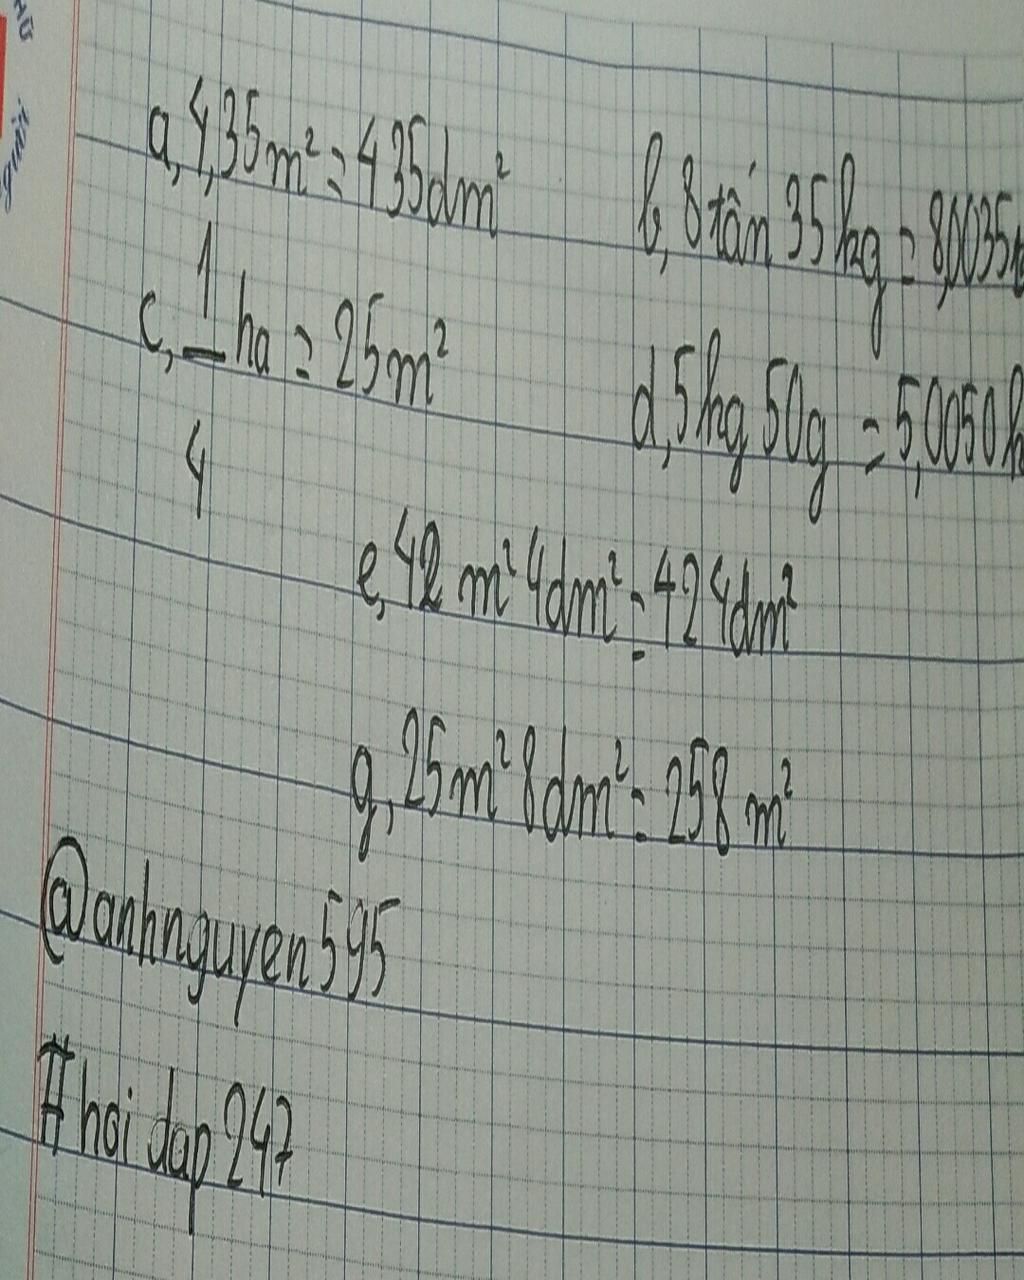 a, 4,35 m² = 435dm² b, 8 tấn 35 kg = 8,0035
c, 1/4 ha = 25 m² d, 5kg 50g = 5,0050
e, 42 m² 4dm² = 424dm²
g, 25 m² 8dm² = 258 m²
@anhnguyen595
#hoidap247